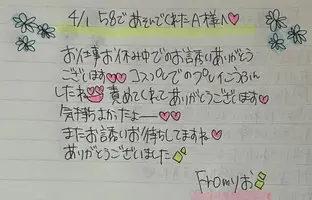 4/1 58であそんでくれたA様へ♡
お仕事お休み中でのお誘いありがとう
ございます♡♡ コスプレでのプレイこうふん
したね 責めてくれてありがとうございます♡
気持ちよかったよー♡♡
またお誘いお待ちしてますね♡
ありがとうございました
Fromりお